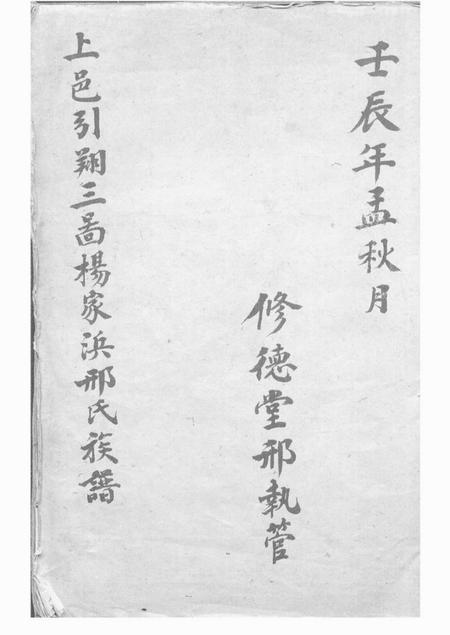 壬辰年孟秋月
修德堂邢執管
上邑引翔三啚楊家浜邢氏族譜